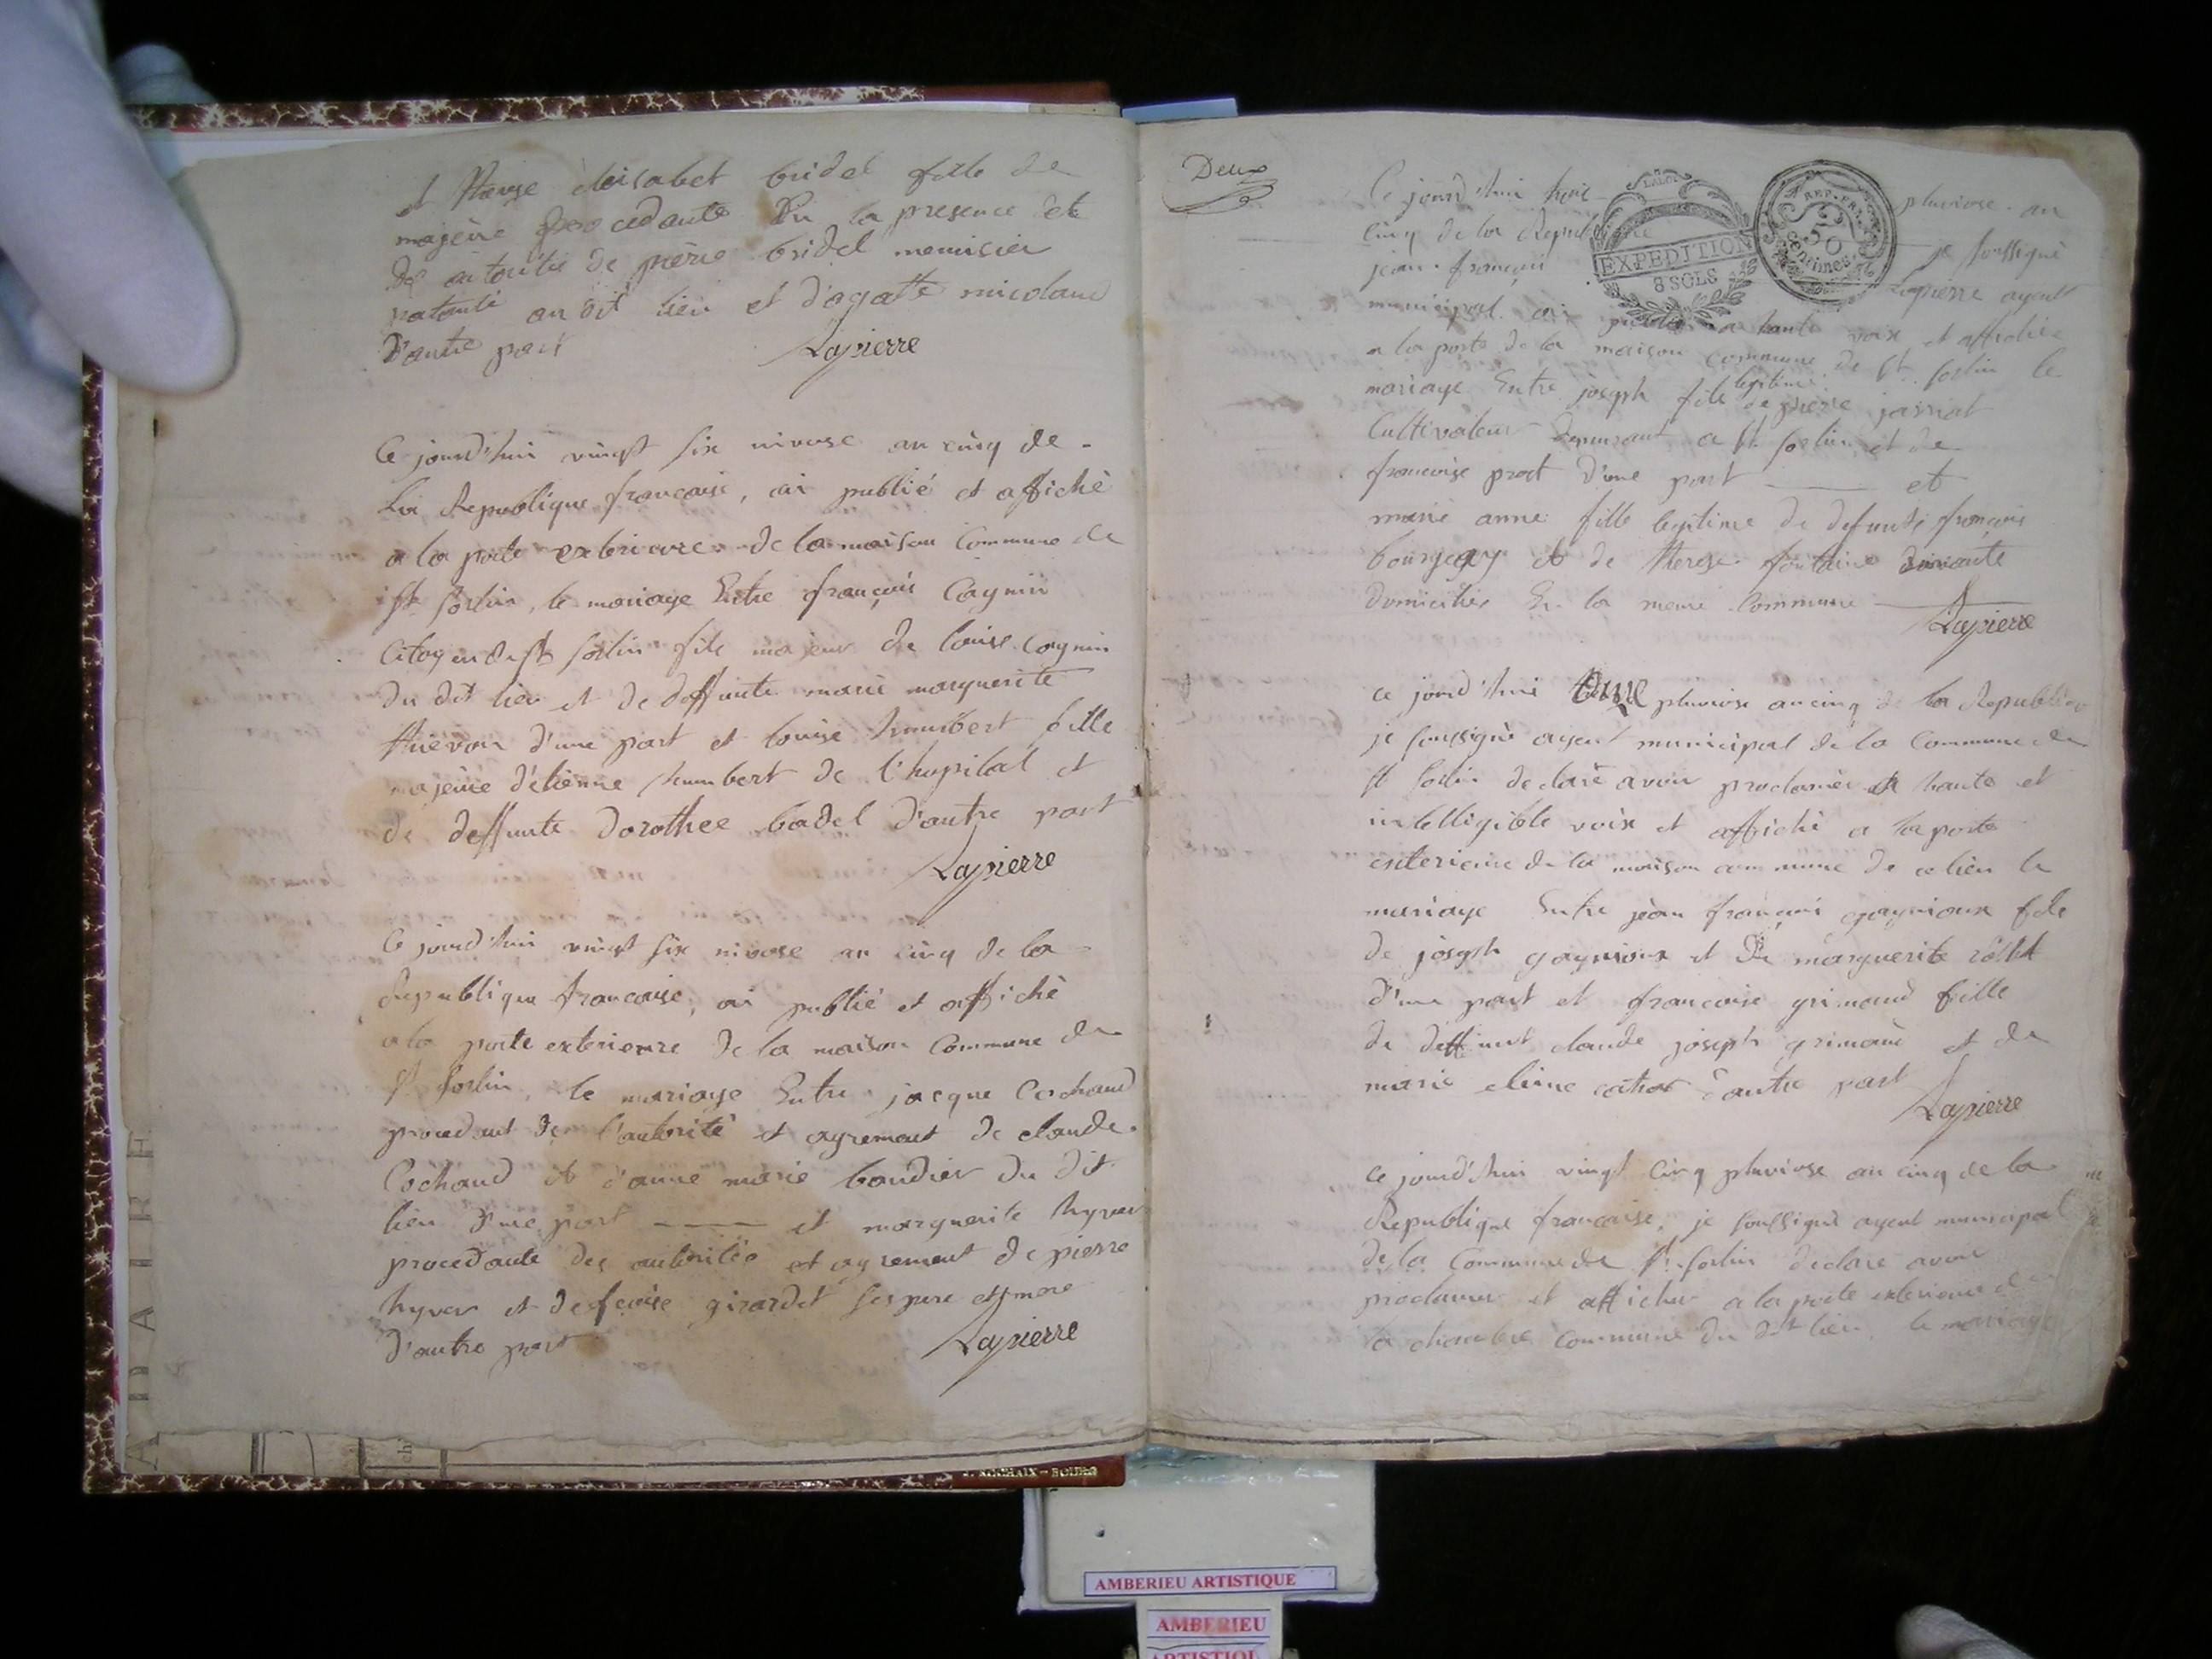 et Therese elisabet bridel fille de
majeure procedante De la presence et de
De autorité de pierre bridel menuisier
patenté au dit lieu et d'agatte micoland
D'autre part Lapierre
Ce jourd'hui vingt six nivose an cinq de
La Republique francaise, ai publié et affiché
a la porte exterieure de la maison Commune de
St sorlin, le mariage Entre françois Cagnin
Citoyen de St sorlin fils majeur de louise Cagnin
du dit lieu et de deffunte marie marguerite
d'une part et louise humbert fille
majeure d'etienne humbert de l'hopital et
de deffunte Dorothee badel D'autre part
Lapierre
Ce jourd'hui vingt six nivose an cinq de la
Republique francaise, ai publié et affiché
a la porte exterieure de la maison Commune de
St sorlin, le mariage Entre jacque Cochand
procedant de l'autorité et agrement de claude
Cochand et d'anne marie baudier du dit
lieu d'une part et marguerite hyver
procedante des autorités et agrement de pierre
hyver et de girardet ses pere et mere
D'autre part Lapierre
Deux
Ce jourd'hui pluviose an
Cinq de la Republique je soussigné
jean françois Lapierre agent
municipal ai publié a haute voix et affiché
a la porte de la maison commune de St sorlin le
mariage Entre joseph fils legitime de pierre jarriat
Cultivateur demeurant a St sorlin et de
francoise prost D'une part et
marie anne fille legitime de defunts françois
bourgey et de therese fontaine
domiciliés En la meme Commune
Lapierre
LALOI
EXPEDITION
8 SOLS
REP. FRA.
50
centimes
ce jourd'hui onze pluviose an cinq de la Republique
je soussigné agent municipal de la Commune de
St sorlin declare avoir proclamé a haute et
intelligible voix et affiché a la porte
exterieure de la maison commune de ce lieu le
mariage Entre jean françois gagnioux fils
de joseph gagnioux et De marguerite
d'une part et francoise grimaud fille
de deffunt claude joseph grimaud et de
marie d'autre part
Lapierre
ce jourd'hui vingt cinq pluviose an cinq de la
Republique francaise, je soussigné agent municipal
de la Commune de St sorlin declare avoir
proclamer et afficher a la porte exterieure de
la chambre commune du dit lieu le mariage
AMBERIEU ARTISTIQUE
AMBERIEU
ARTISTIQU